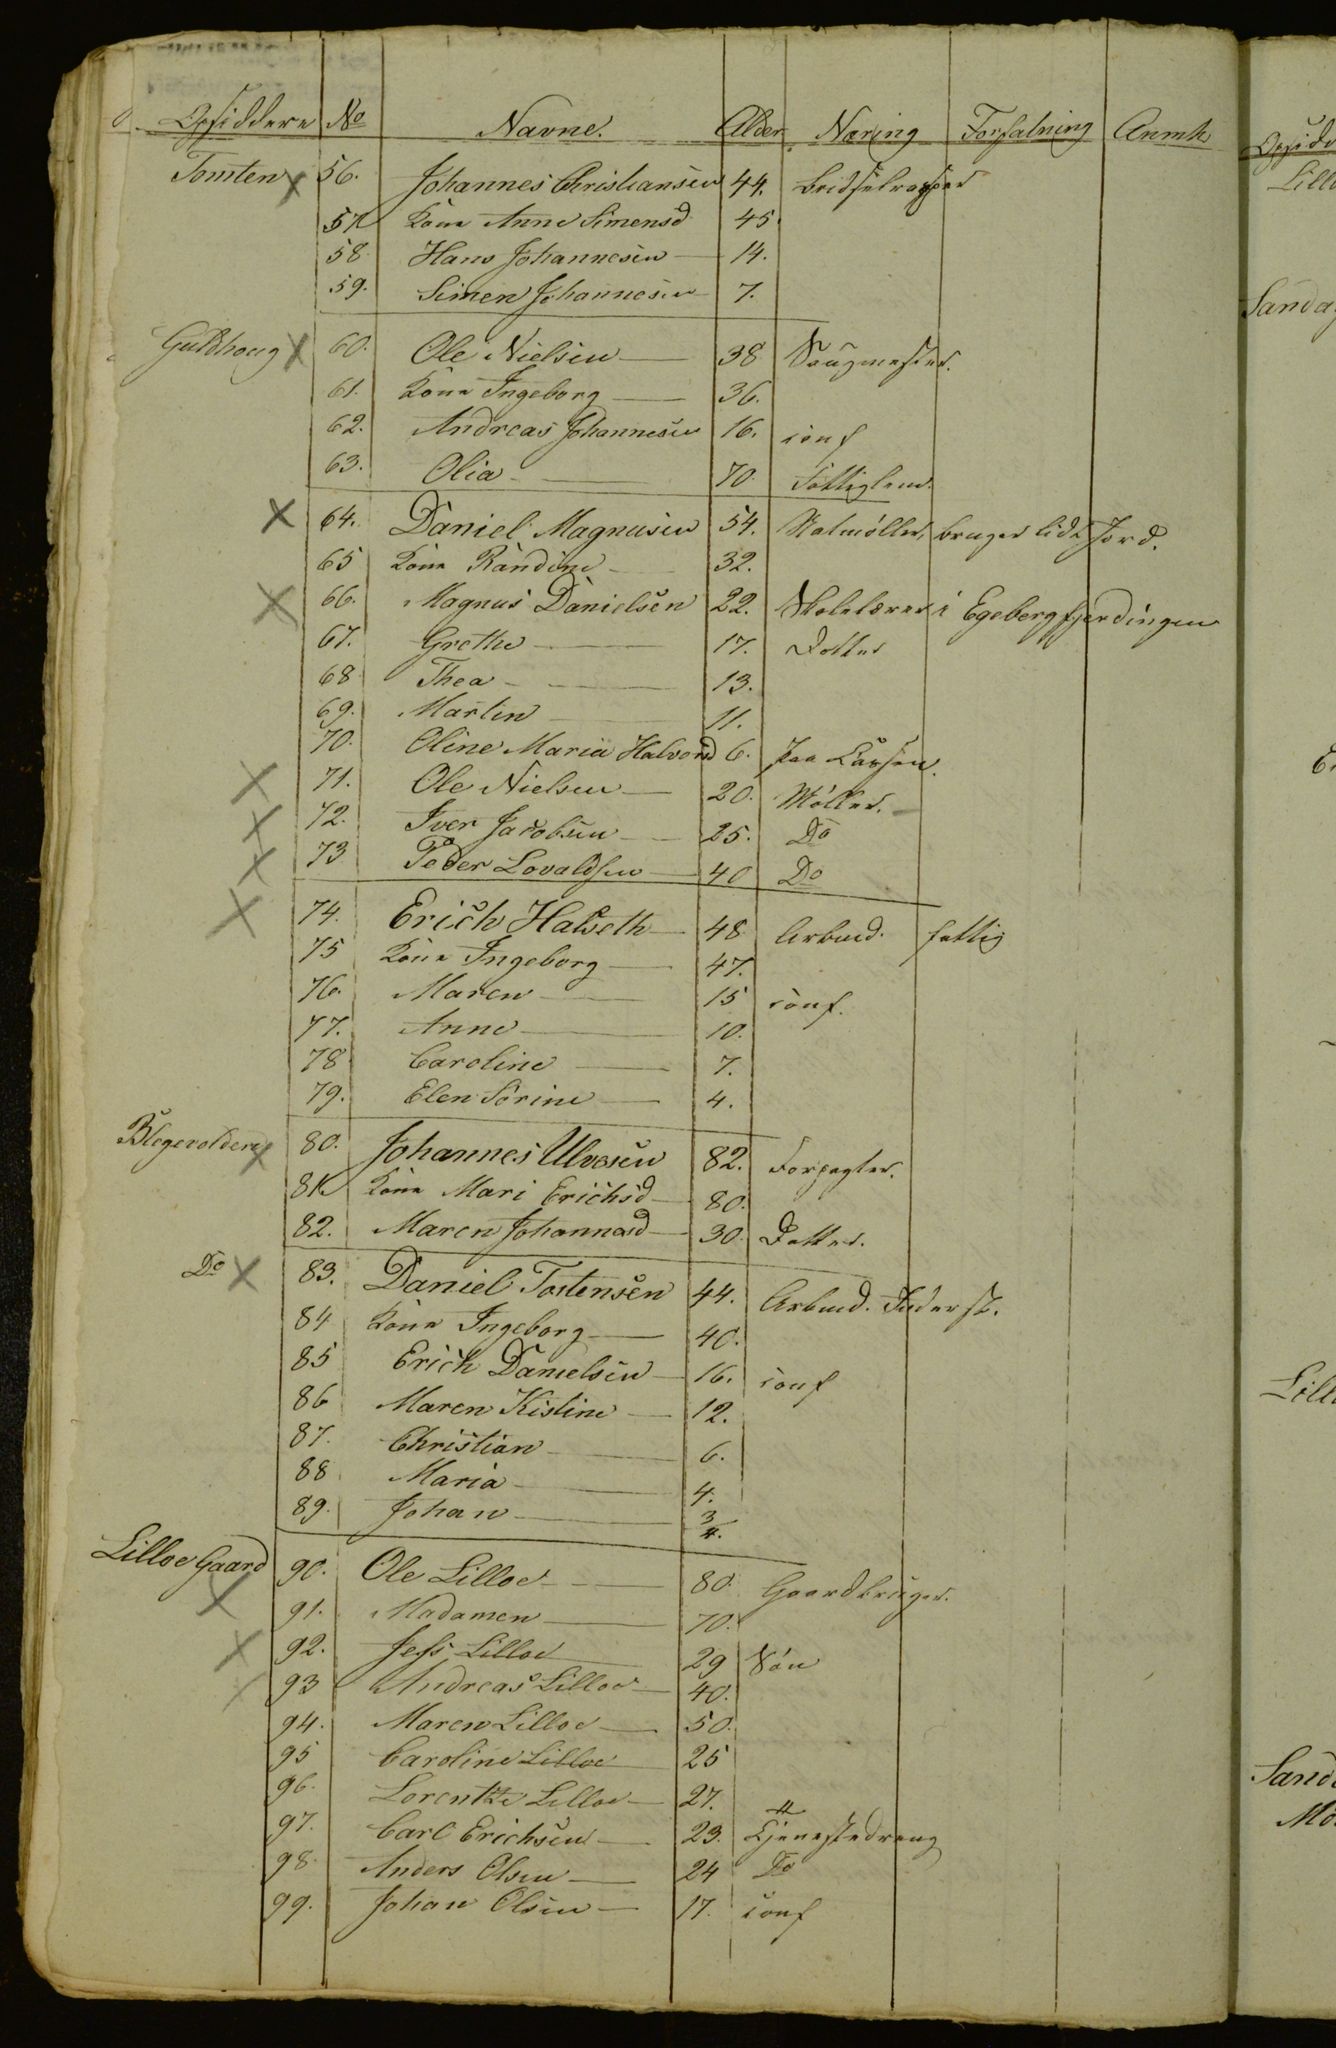 Opsiddere No Navne. Alder Næring Forfatning Anmk
Tomten 56. Johannes Christiansen 44.
57 Kone Anne Simensd 45
58 Hans Johannesen 14.
59. Simen Johannesen 7.
Guldhoug 60. Ole Nielsen 38 Saugmester.
61. Kone Ingeborg 36.
62. Andreas Johannesen 16. conf
63. Olia 70. Fattiglem.
64. Daniel Magnusen 54. bruger lidt Jord.
65 Kone Randine 32.
66. Magnus Danielsen 22. Skolelærer i Egebergfjerdingen
67. Grethe 17. Datter
68 Thea 13.
69. Martin 11.
70. Oline Maria Halvorsd 6. paa
71. Ole Nielsen 20. Møller.
72. Iver Jacobsen 25. Do
73 Peder Lovaldsen 40 Do
74. Erich Halseth 48 Arbeid. fattig
75 Kone Ingeborg 47.
76. Maren 15 conf.
77. Anne 10.
78 Caroline 7.
79. Elen Sørine 4.
Blegevolden 80. Johannes Ulvesen 82. Forpagter.
81 Kone Mari Erichsd 80.
82. Maren Johannesd 30. Datter.
Do 83. Daniel Tostensen 44. Arbeid. Inderst.
84 Kone Ingeborg 40.
85 Erich Danielsen 16. conf
86 Maren Kistine 12.
87. Christian 6.
88 Maria 4.
89. Johan 3/4.
Lilloe Gaard 90. Ole Lilloe 80. Gaardbruger.
91. Madamen 70.
92. Jess Lilloe 29 Søn
93 Andreas Lilloe 40.
94. Maren Lilloe 50.
95 Caroline Lilloe 25
96. Lorentze Lilloe 27.
97. Carl Erichsen 23. Tjenestedreng
98. Anders Olsen 24 Do
99. Johan Olsen 17. conf